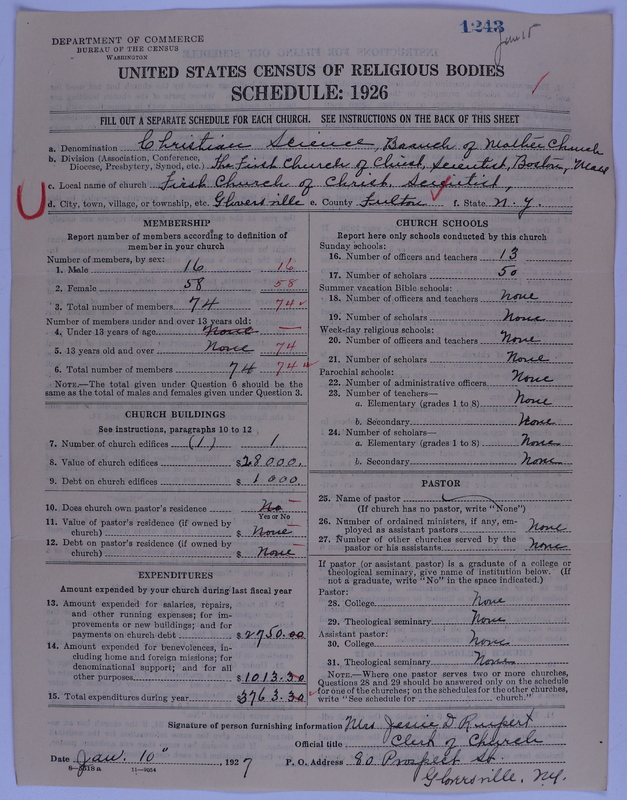 1243
Jan 15
DEPARTMENT OF COMMERCE
BUREAU OF THE CENSUS
WASHINGTON
UNITED STATES CENSUS OF RELIGIOUS BODIES
SCHEDULE: 1926
FILL OUT A SEPARATE SCHEDULE FOR EACH CHURCH. SEE INSTRUCTIONS ON THE BACK OF THIS SHEET
a. Denomination Christian Science, Branch of Mother Church
b. Division (Association, Conference, Diocese, Presbytery, Synod, etc.) The First Church of Christ, Scientist, Boston, Mass
c. Local name of church First Church of Christ, Scientist,
d. City, town, village, or township, etc. Gloversville e. County Fulton f. State N.Y.
MEMBERSHIP
Report number of members according to definition of
member in your church
Number of members, by sex:
1. Male 16 16
2. Female 58 58
3. Total number of members 74 74
Number of members under and over 13 years old:
4. Under 13 years of age None —
5. 13 years old and over None 74
6. Total number of members 74 74
NOTE.—The total given under Question 6 should be the
same as the total of males and females given under Question 3.
CHURCH BUILDINGS
See instructions, paragraphs 10 to 12
7. Number of church edifices (1) 1
8. Value of church edifices $28000.
9. Debt on church edifices $1000.
10. Does church own pastor's residence No
Yes or No
11. Value of pastor's residence (if owned by
church) $ None
12. Debt on pastor's residence (if owned by
church) $ None
EXPENDITURES
Amount expended by your church during last fiscal year
13. Amount expended for salaries, repairs,
and other running expenses; for im-
provements or new buildings; and for
payments on church debt $2750.00
14. Amount expended for benevolences, in-
cluding home and foreign missions; for
denominational support; and for all
other purposes $1013.30
15. Total expenditures during year $3763.30
CHURCH SCHOOLS
Report here only schools conducted by this church
Sunday schools:
16. Number of officers and teachers 13
17. Number of scholars 50
Summer vacation Bible schools:
18. Number of officers and teachers None
19. Number of scholars None
Week-day religious schools:
20. Number of officers and teachers None
21. Number of scholars None
Parochial schools:
22. Number of administrative officers None
23. Number of teachers—
a. Elementary (grades 1 to 8) None
b. Secondary None
24. Number of scholars—
a. Elementary (grades 1 to 8) None
b. Secondary None
PASTOR
25. Name of pastor
(If church has no pastor, write "None")
26. Number of ordained ministers, if any, em-
ployed as assistant pastors None
27. Number of other churches served by the
pastor or his assistants None
If pastor (or assistant pastor) is a graduate of a college or
theological seminary, give name of institution below. (If
not a graduate, write "No" in the space indicated.)
Pastor:
28. College None
29. Theological seminary None
Assistant pastor:
30. College None
31. Theological seminary None
NOTE.—Where one pastor serves two or more churches,
Questions 28 and 29 should be answered only on the schedule
for one of the churches; on the schedules for the other churches,
write "See schedule for church."
Signature of person furnishing information Mrs Jessie D Ruppert
Official title Clerk of Church
Date Jan. 10" , 1927 P. O. Address 80 Prospect St.
Gloversville, N.Y.
11—9054